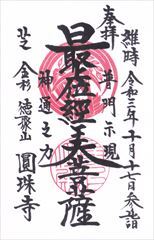 維時
令和三年十月十七日参詣
奉拝
普門示現
最正位經王大菩薩
神通之力
芝
金杉
徳聚山
圓珠寺